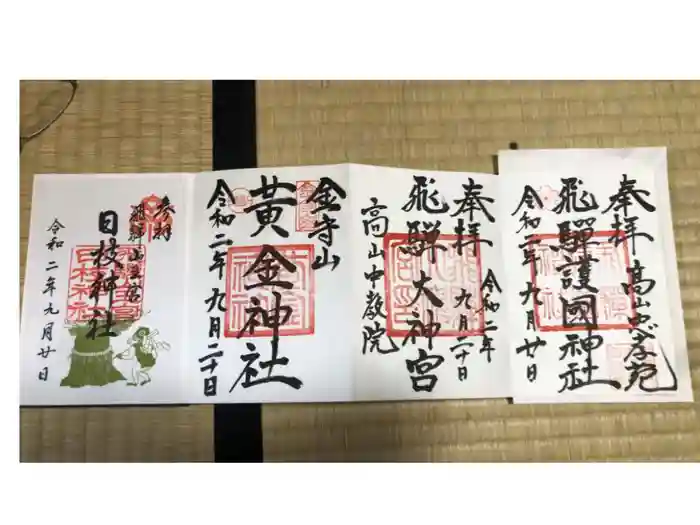 奉拝
高山忠孝苑
飛騨護國神社
令和二年九月廿日
奉拝
令和二年
九月二十日
飛騨大神宮
高山中教院
金守山
黄金神社
令和二年九月二十日
参拝
飛騨山王宮
日枝神社
令和二年九月廿日
日枝神社